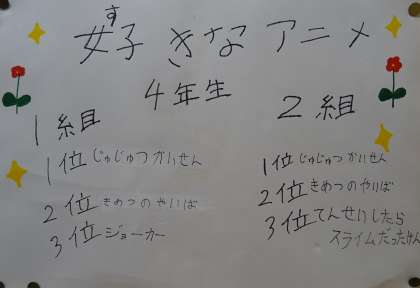 女子好きなアニメ
4年生
1組
1位じゅじゅつかいせん
2位きめつのやいば
3位ジョーカー
2組
1位じゅじゅつかいせん
2位きめつのやいば
3位てんせいしたら
スライムだったけん